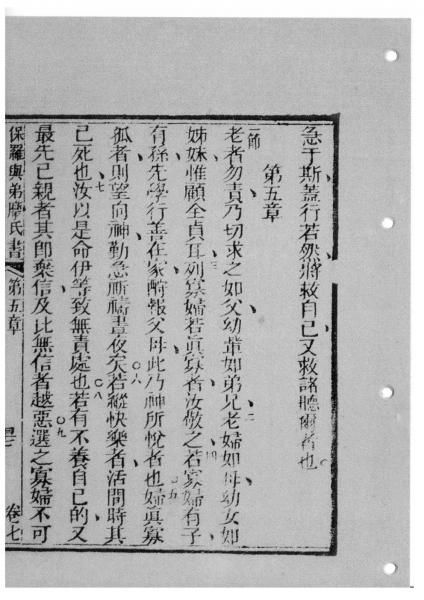 急于斯蓋行若然將救自己又救諸聽爾者也
第五章
一節
老者勿責乃切求之如父幼輩如弟兄老婦如母幼女如
二
姊妹惟願全貞耳列寡婦若眞寡者汝敬之若寡婦有子
三 四
有孫先學行善在家酧報父母此乃神所悅者也婦眞寡
五
孤者則望向神勤急祈禱晝夜矣若縱快樂者活間時其
六
已死也汝以是命伊等致無責處也若有不養自己的又
七 八
最先已親者其卽棄信及比無信者越惡選之寡婦不可
九
保羅與弟摩氏書 第五章 卷七